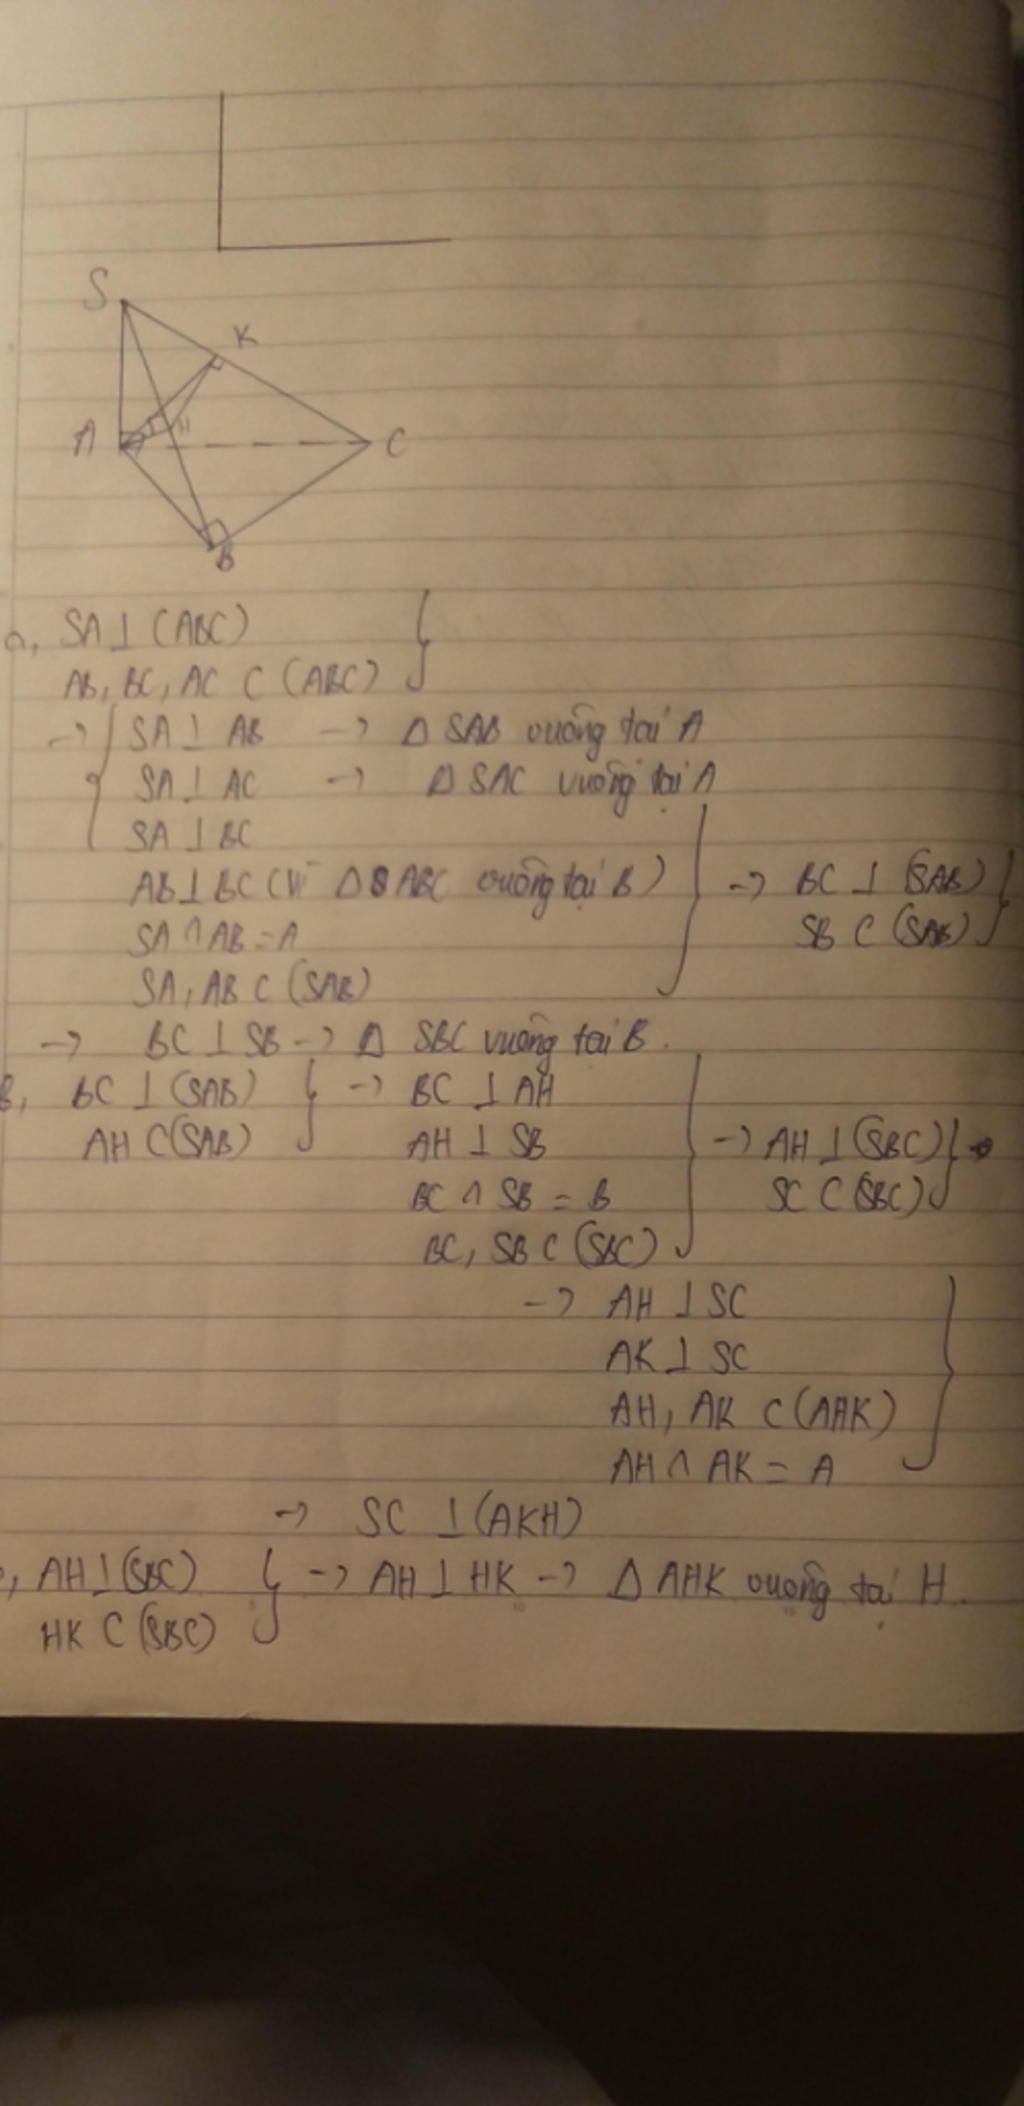 S
K
A
H
C
B
a, SA ⊥ (ABC)
AB, BC, AC ⊂ (ABC) }
→ { SA ⊥ AB → Δ SAB vuông tại A
SA ⊥ AC → Δ SAC vuông tại A
SA ⊥ BC
AB ⊥ BC (vì Δ ABC vuông tại B) } → BC ⊥ (SAB) }
SA ∩ AB = A SB ⊂ (SAB)
SA, AB ⊂ (SAB)
→ BC ⊥ SB → Δ SBC vuông tại B.
b, BC ⊥ (SAB) } → BC ⊥ AH
AH ⊂ (SAB) AH ⊥ SB } → AH ⊥ (SBC) } →
BC ∩ SB = B SC ⊂ (SBC)
BC, SB ⊂ (SBC)
→ AH ⊥ SC
AK ⊥ SC
AH, AK ⊂ (AHK) }
AH ∩ AK = A
→ SC ⊥ (AKH)
, AH ⊥ (SBC) } → AH ⊥ HK → Δ AHK vuông tại H.
HK ⊂ (SBC)